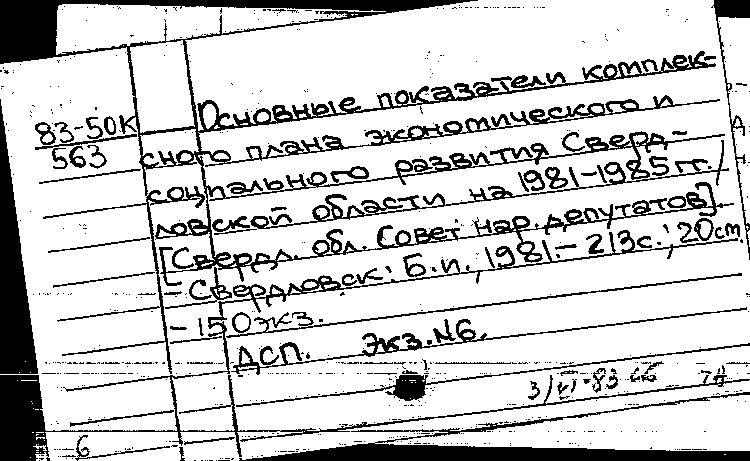 83-50К
563
Основные показатели комплек-
сного плана экономического и
социального развития Сверд-
ловской области на 1981-1985 гг. /
[Свердл. обл. Совет нар. депутатов].
- Свердловск: Б.и., 1981.- 213с.; 20см.
- 150экз.
ДСП. Экз.N6.
3/VI-83
6